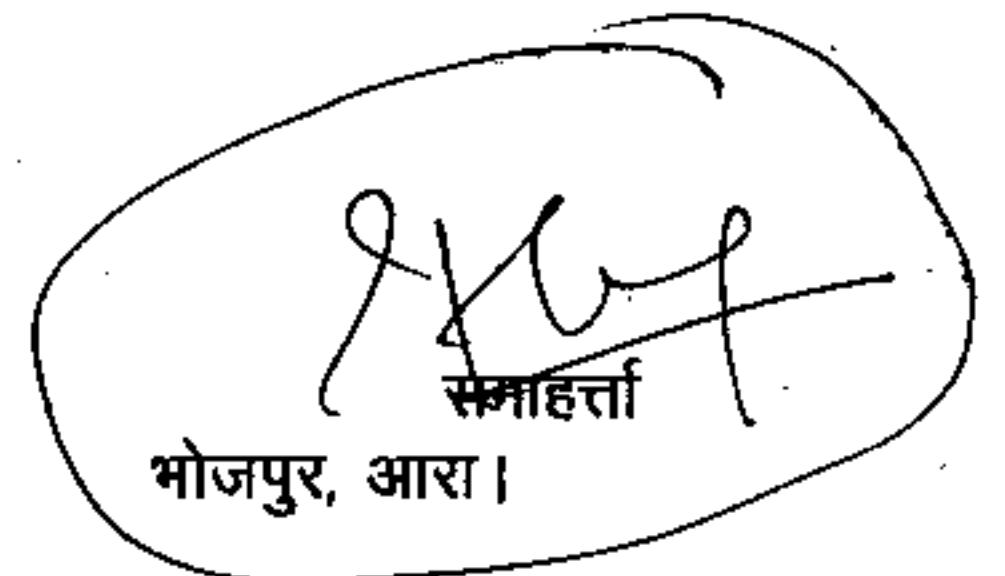 समाहर्त्ता
भोजपुर, आरा।